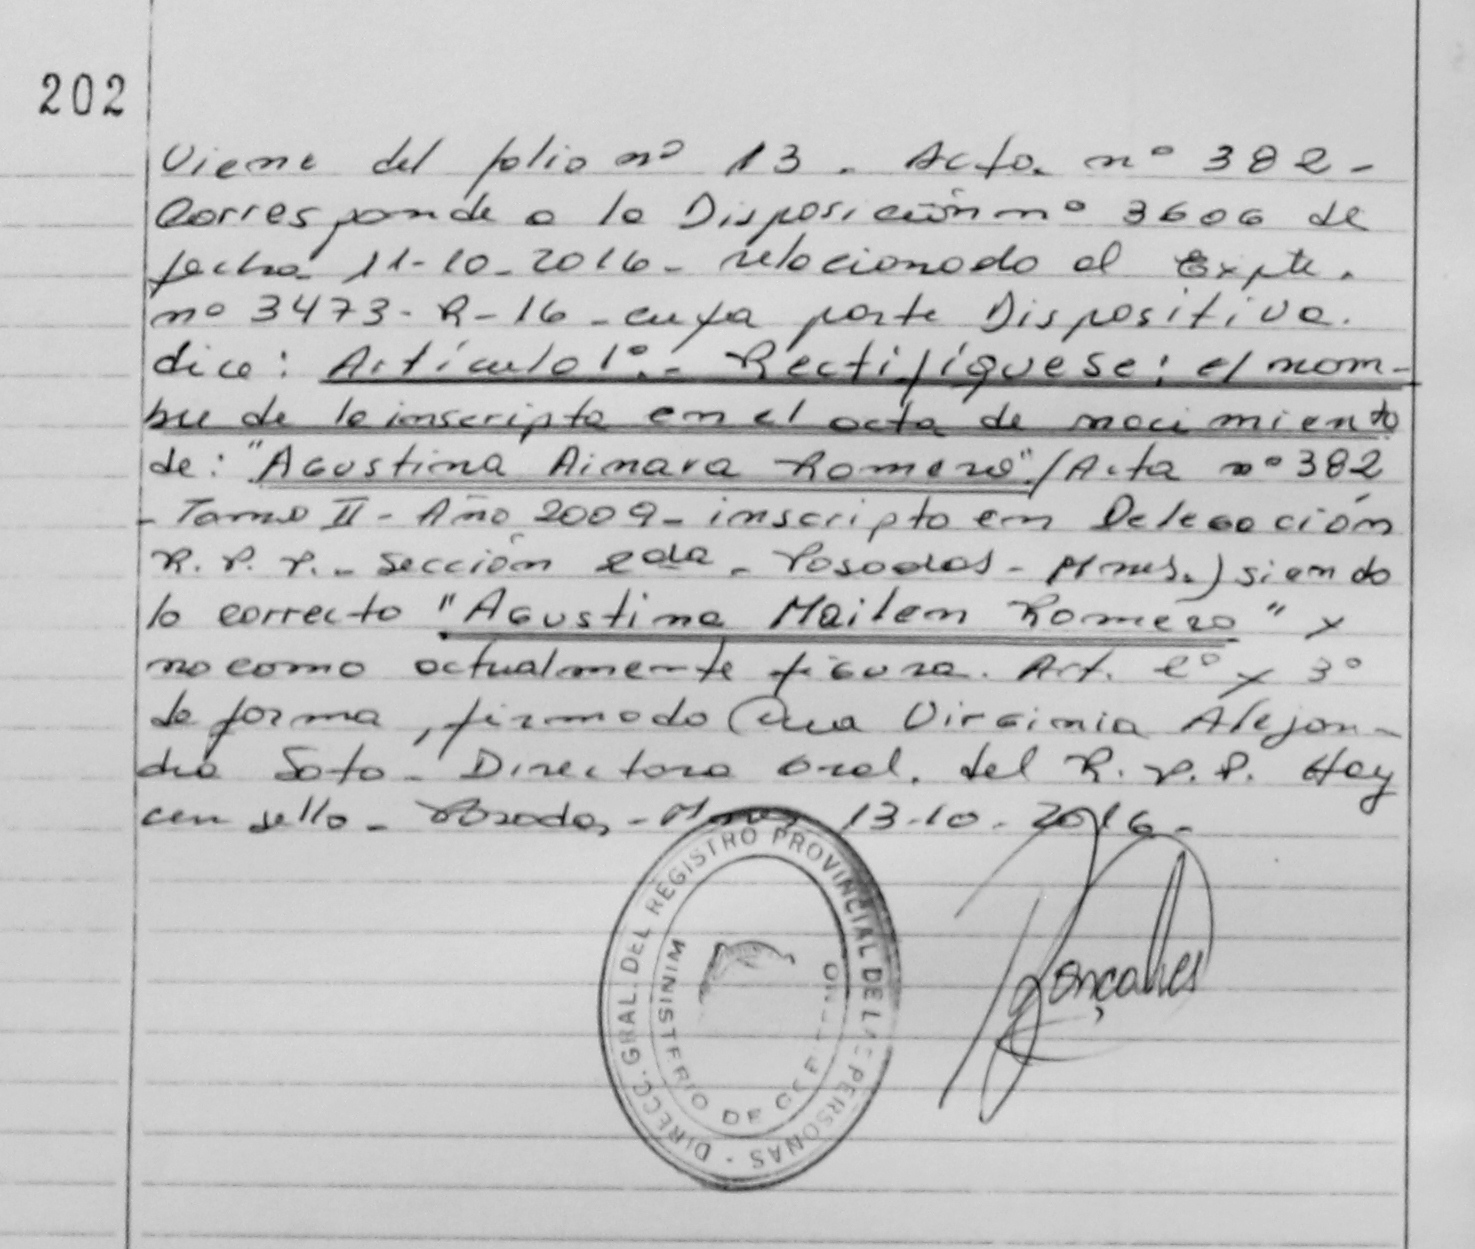 202
Viene del folio nº 13. Acta nº 382-
Corresponde a la Disposición nº 3606 de
fecha 11-10-2016- relacionado al Expte.
nº 3473-R-16-cuya parte Dispositiva.
dice: Artículo 1º.- Rectifíquese: el nom-
bre de la inscripta en el acta de nacimiento
de: "Agustina Ainara Romero"/Acta nº 382
- Tomo II - Año 2009- inscripta en Delegación
R.P.P.- Sección 2da - Posadas - Mnes.) siendo
lo correcto "Agustina Mailen Romero" y
no como actualmente figura. Art. 2º y 3º
de forma, firmado Virginia Alejan-
dra Soto - Directora Gral. del R.P.P. Hay
un sello - Posadas - Mnes 13-10-2016-
DIRECC. GRAL. DEL REGISTRO PROVINCIAL DE LAS PERSONAS -
MINISTERIO DE GOBIERNO
Gonçalves